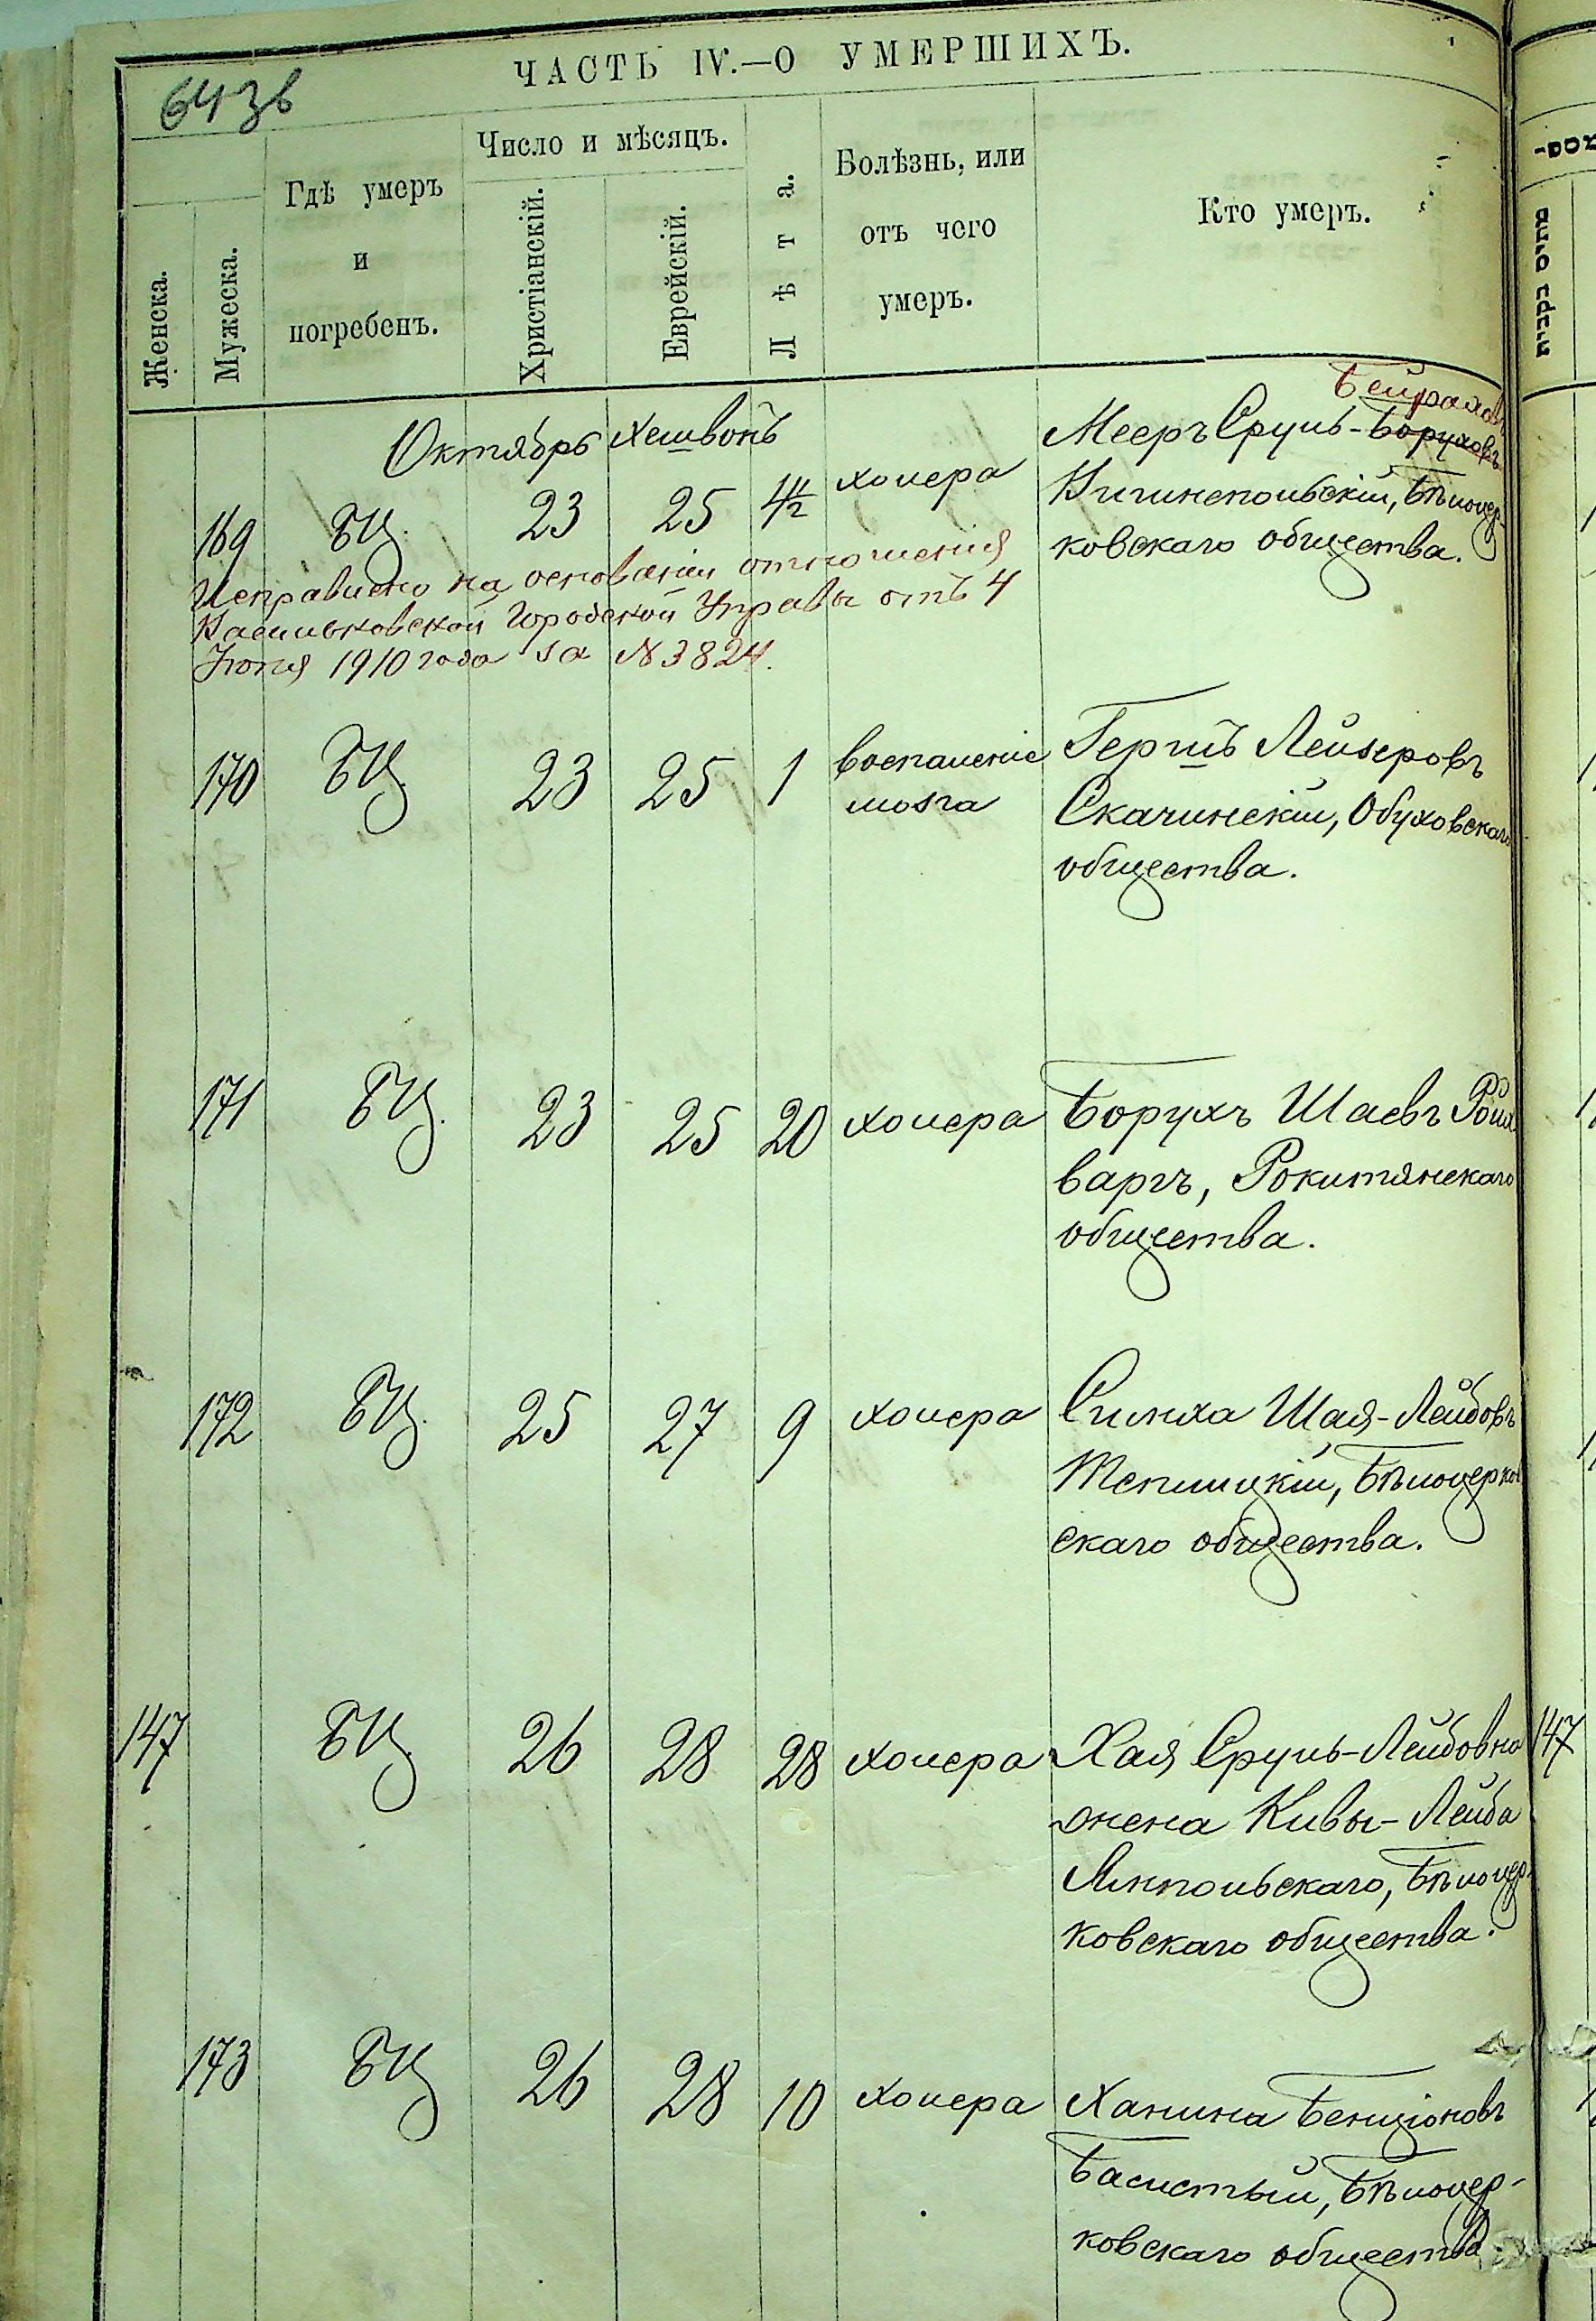 ЧАСТЬ IV.—О УМЕРШИХЪ.
64 зв
Женска.
Мужеска.
Гдѣ умеръ
и
погребенъ.
Число и мѣсяцъ.
Христіанскій.
Еврейскій.
Лѣта.
Болѣзнь, или
отъ чего
умеръ.
Кто умеръ.
Октябрь Хешвонъ
169 БЦ. 23 25 4½ холера
Бейраховъ
Мееръ Сруль-Боруховъ
Кичинепольскій, Бѣлоцер-
ковскаго общества.
Исправлено на основаніи отношенія
Васильковской Городской Управы отъ 4
Іюня 1910 года за №3824.
170 БЦ. 23 25 1 воспаленіе
мозга
Гершъ Лейзеровъ
Скачинскій, Обуховскаго
общества.
171 БЦ. 23 25 20 холера
Борухъ Шаевъ Ройз
варгъ, Рокитянскаго
общества.
172 БЦ. 25 27 9 холера
Симха Шая-Лейбовъ
Теплицкій, Бѣлоцерков
скаго общества.
147 БЦ. 26 28 28 холера
Хая Сруль-Лейбовна 147
жена Кивы-Лейба
Ямпольскаго, Бѣлоцер-
ковскаго общества.
173 БЦ 26 28 10 холера
Ханина Бенціоновъ
Басистый, Бѣлоцер-
ковскаго общества